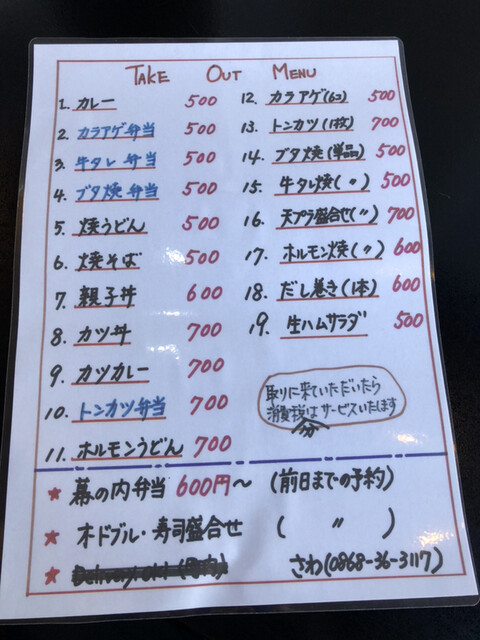 TAKE OUT MENU
1. カレー 500
2. カラアゲ弁当 500
3. 牛タレ弁当 500
4. ブタ焼弁当 500
5. 焼うどん 500
6. 焼そば 500
7. 親子丼 600
8. カツ丼 700
9. カツカレー 700
10. トンカツ弁当 700
11. ホルモンうどん 700
12. カラアゲ(6コ) 500
13. トンカツ(1枚) 700
14. ブタ焼(単品) 500
15. 牛タレ焼(〃) 500
16. 天プラ盛合せ(〃) 700
17. ホルモン焼(〃) 600
18. だし巻き(1本) 600
19. 生ハムサラダ 500
取りに来ていただいたら
消費税分はサービスいたします
★ 幕の内弁当 600円〜 (前日までの予約)
★ オドブル・寿司盛合せ ( 〃 )
★ さわ(0868-36-3117)